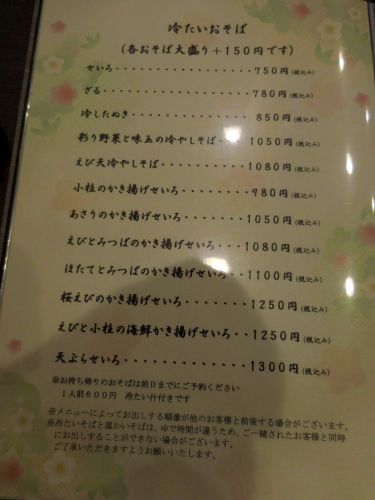 冷たいおそば
(各おそば大盛り＋150円です)
せいろ・・・・・・・・・・・・・・・・・750円(税込み)
ざる・・・・・・・・・・・・・・・・・・780円(税込み)
冷したぬき・・・・・・・・・・・・・・850円(税込み)
彩り野菜と味玉の冷やしそば・・・1050円(税込み)
えび天冷やしそば・・・・・・・・・1080円(税込み)
小柱のかき揚げせいろ・・・・・・・980円(税込み)
あさりのかき揚げせいろ・・・・・1050円(税込み)
えびとみつばのかき揚げせいろ・・1080円(税込み)
ほたてとみつばのかき揚げせいろ・・1100円(税込み)
桜えびのかき揚げせいろ・・・・・1250円(税込み)
えびと小柱の海鮮かき揚げせいろ・・1250円(税込み)
天ぷらせいろ・・・・・・・・・・・1300円(税込み)
※お持ち帰りのおそばは前日までにご予約ください
1人前600円　冷たい汁付きです
※メニューによってお出しする順番が他のお客様と前後する場合がございます。
※冷たいそばと温かいそばは、ゆで時間が違うため、ご一緒されたお客様と同時
にお出しすることができない場合がございます。
ご了承いただきますようお願いいたします。